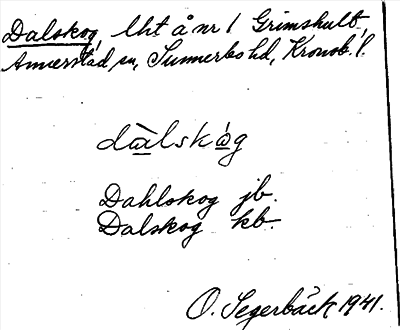 Dalskog, lht å nr 1 Grimshult,
Annerstad, sn, Sunnerbo hd, Kronob. l.
dàlskóg
Dahlskog jb.
Dalskog kb.
O. Segerbäck 1941.